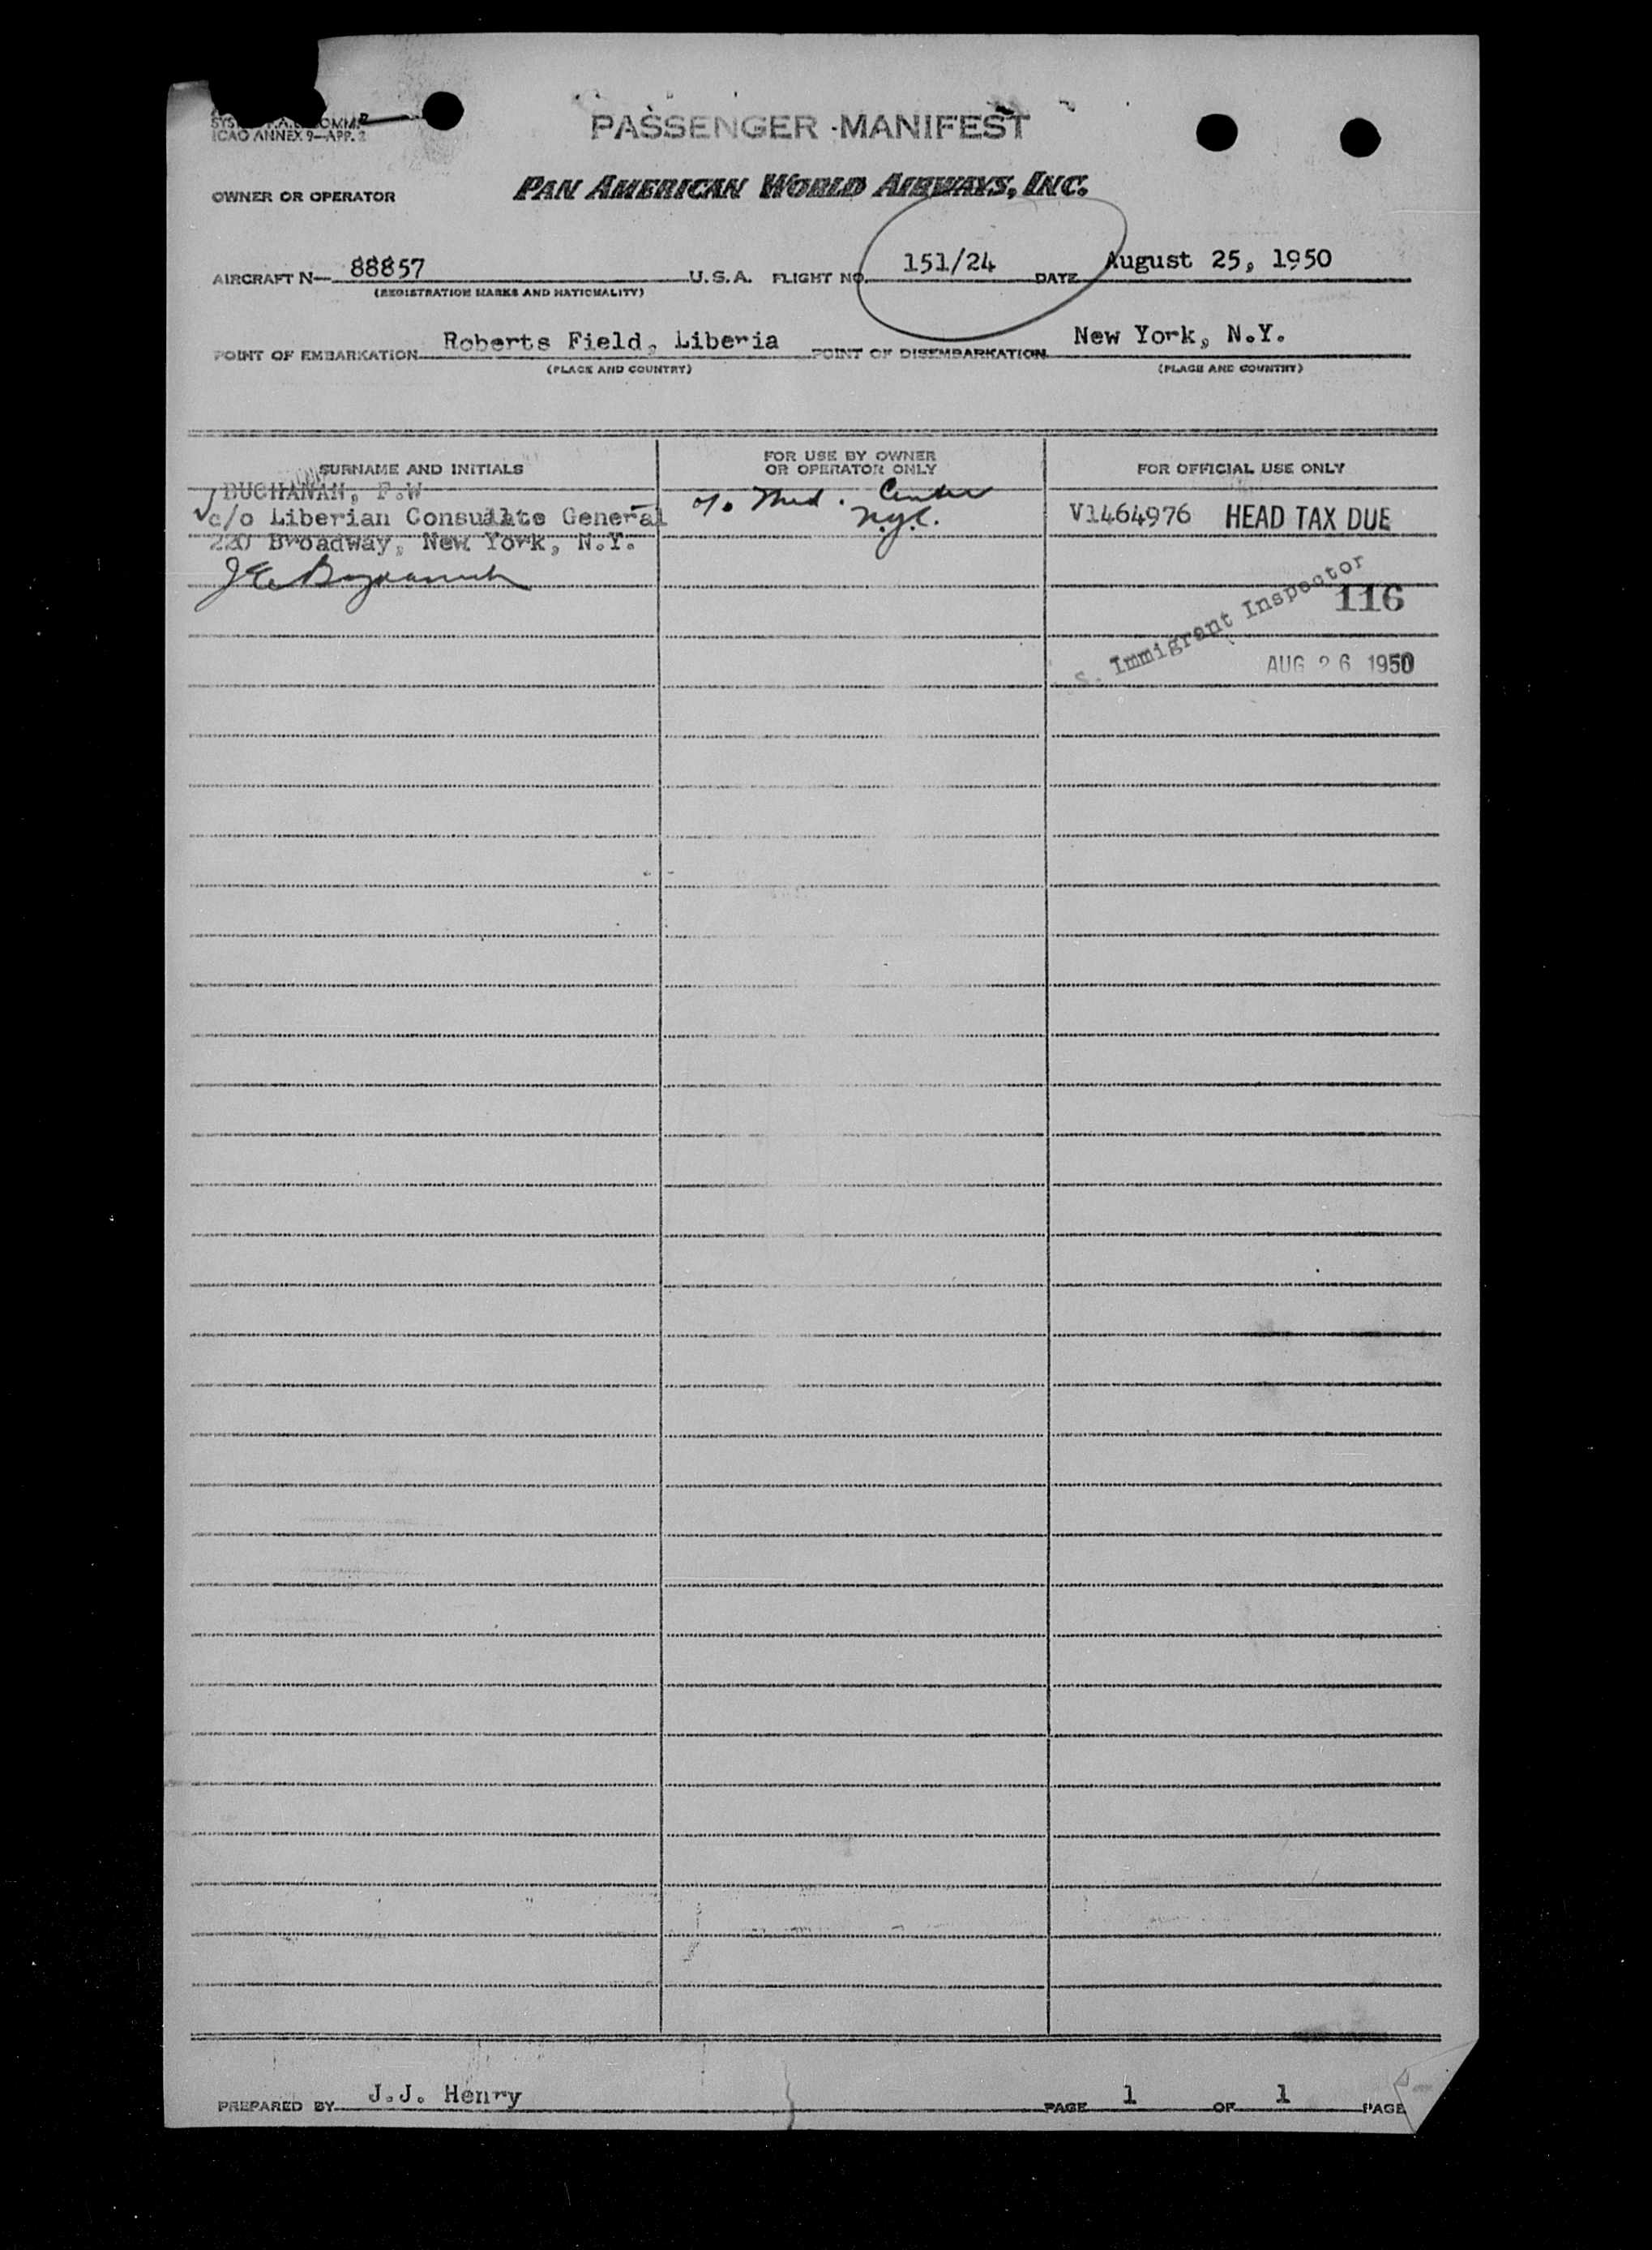 ICAO ANNEX 9—APP. 2
PASSENGER MANIFEST
OWNER OR OPERATOR PAN AMERICAN WORLD AIRWAYS, INC.
AIRCRAFT N— 88857 U.S.A. FLIGHT NO. 151/24 DATE August 25, 1950
(REGISTRATION MARKS AND NATIONALITY)
POINT OF EMBARKATION Roberts Field, Liberia POINT OF DISEMBARKATION New York, N.Y.
(PLACE AND COUNTRY) (PLACE AND COUNTRY)
SURNAME AND INITIALS FOR USE BY OWNER OR OPERATOR ONLY FOR OFFICIAL USE ONLY
BUCHANAN, F.W
c/o Liberian Consulate General c/o Med. Center V1464976 HEAD TAX DUE
N.Y.C.
220 Broadway, New York, N.Y.
S. Immigrant Inspector
116
AUG 26 1950
PREPARED BY J.J. Henry PAGE 1 OF 1 PAGE